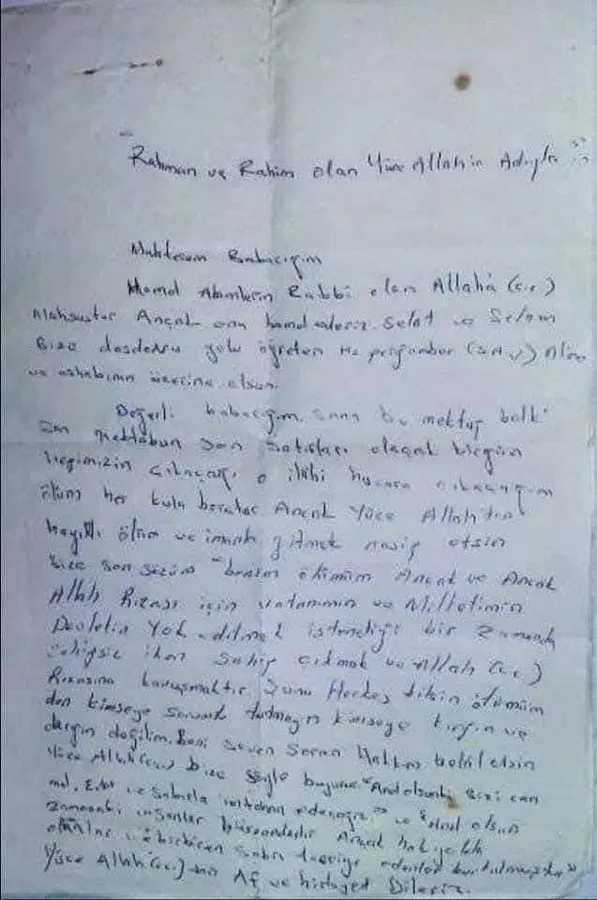 "Rahman ve Rahim olan Yüce Allah'ın Adıyla"
Muhterem Babacığım
Hamd Alemlerin Rabbi olan Allah'a (c.c)
Mahsustur Ancak ona hamd ederiz. Selat ve Selam
Bize dosdoğru yolu öğreten Hz peygamber (S.A.V) Aline
ve ashabının üzerine olsun.
Değerli babacığım, sana bu mektup belki
son mektubun son satırları olacak birgün
hepimizin çıkacağı o ilahi huzura çıkacağım
ölüm her kula beraber. Ancak Yüce Allah'tan
hayırlı ölüm ve imanlı gitmek nasip etsin
Size son sözüm "benim ölümüm Ancak ve Ancak
Allah Rızası için vatanımın ve Milletimin
Devletin Yok edilmek istendiği bir zamanda
Sahipsiz iken Sahip çıkmak ve Allah (c.c)
Rızasına kavuşmaktır. Şunu Herkes bilsin ölümüm
den kimseye sorumlu tutmayın kimseye kırgın ve
dargın değilim. Beni Seven Sayan Hakkını helal etsin
Yüce Allah (c.c) bize şöyle buyurur "Andolsunki Sizi can
mal, ve Sabırla imtihan edeceğiz" ve "And olsun
zamanaki insanlar hüsrandadır Ancak hakiyetli
olanlar ve birbirine sabrı tavsiye edenler kurtulmuştur"
Yüce Allah (c.c)'den Af ve hidayet Dileriz.